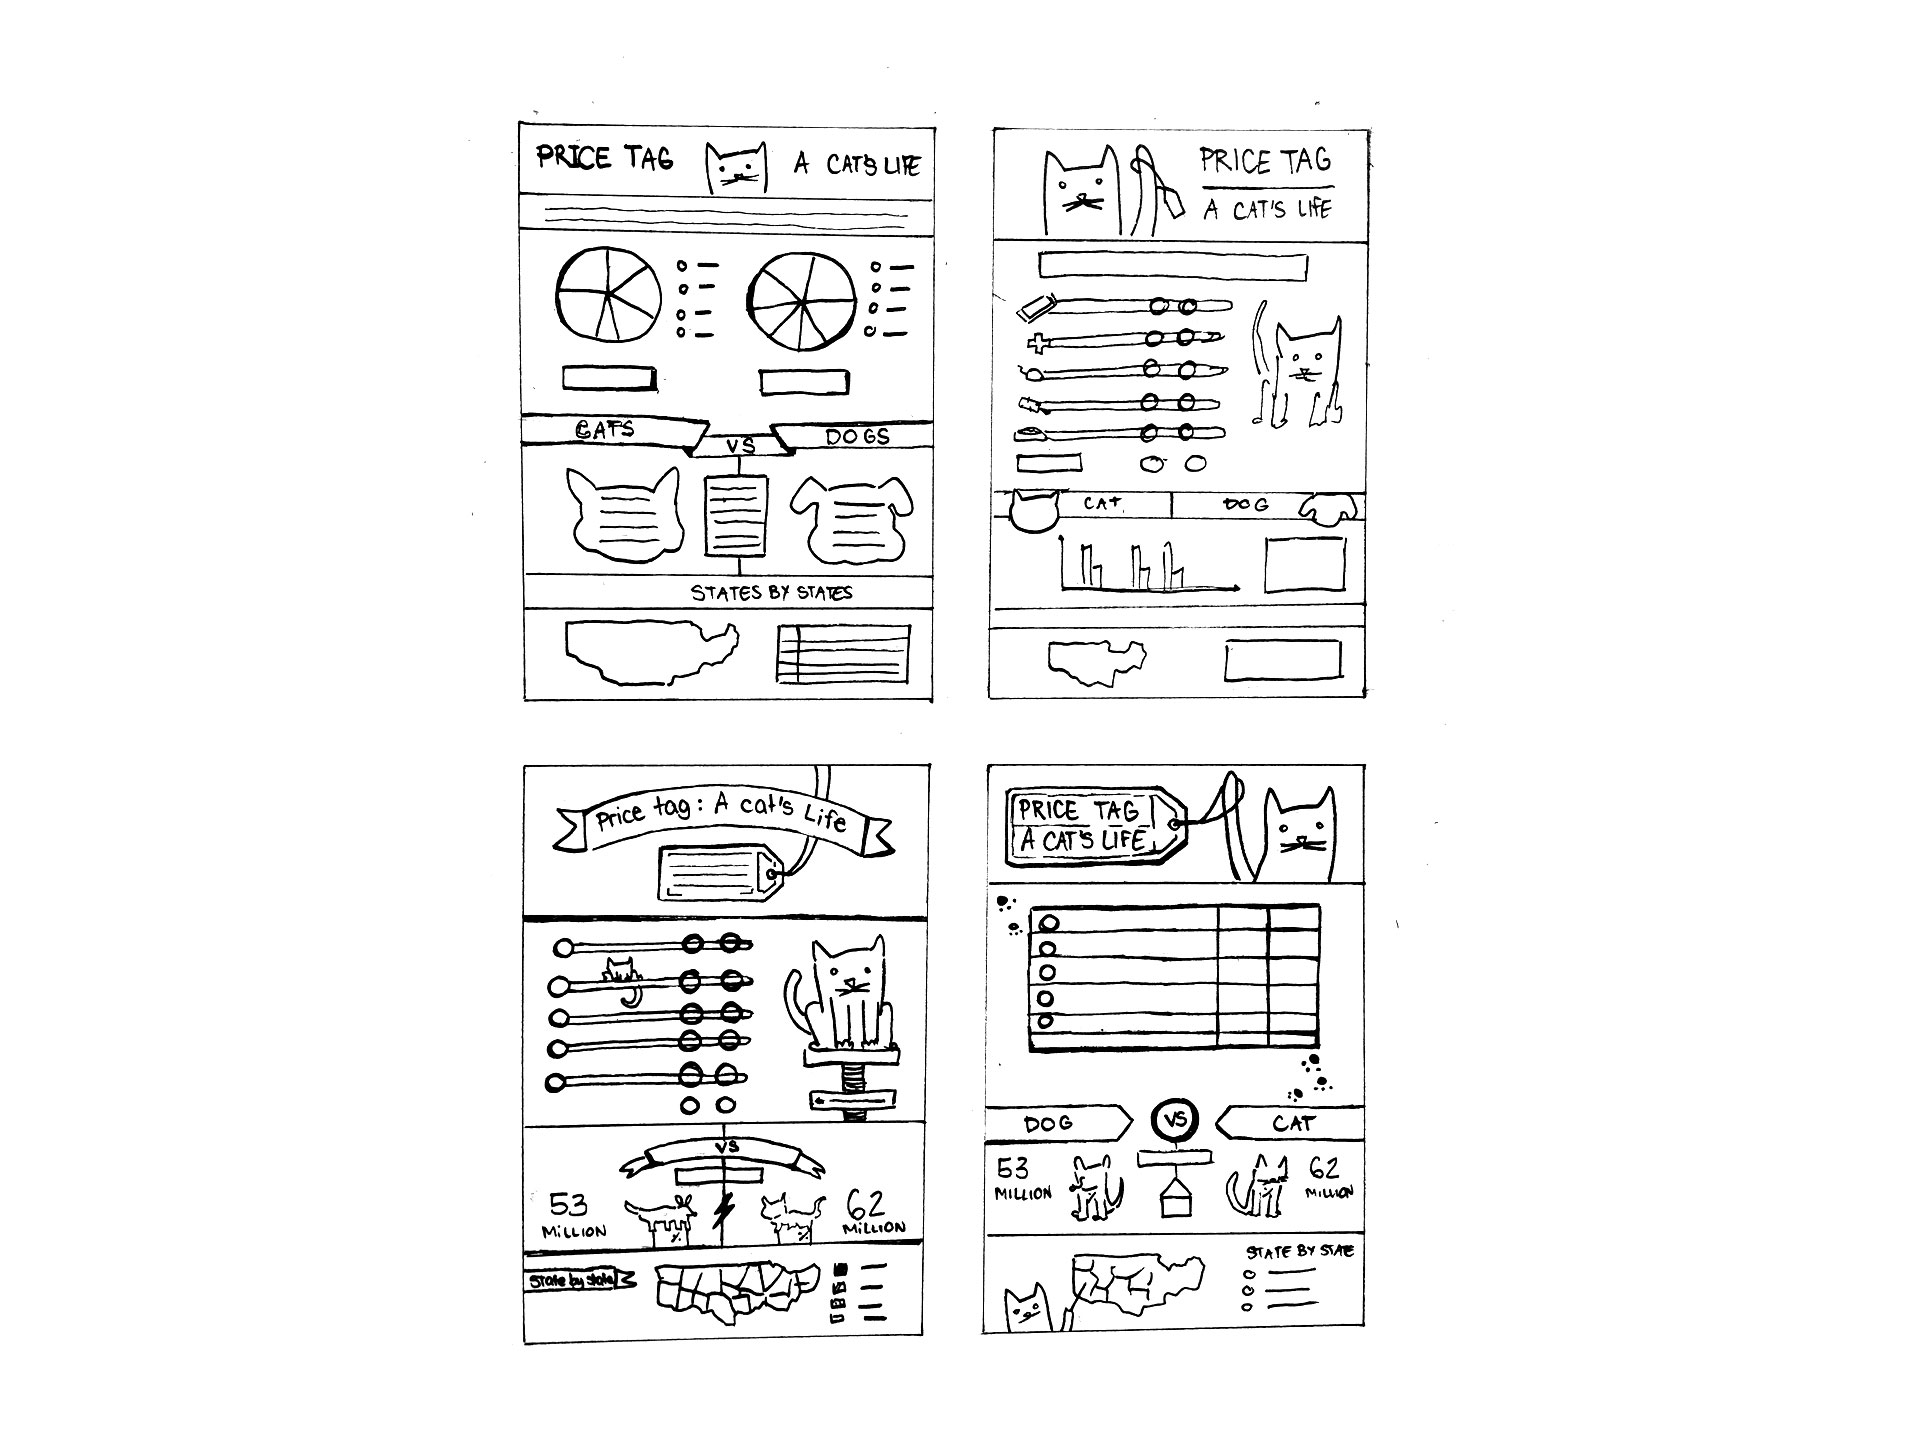 PRICE TAG A CAT'S LIFE
CATS VS DOGS
STATES BY STATES
PRICE TAG
A CAT'S LIFE
CAT DOG
Price tag: A cat's Life
VS
53 MILLION
62 MILLION
State by state
PRICE TAG
A CAT'S LIFE
DOG VS CAT
53 MILLION
62 MILLION
STATE BY STATE